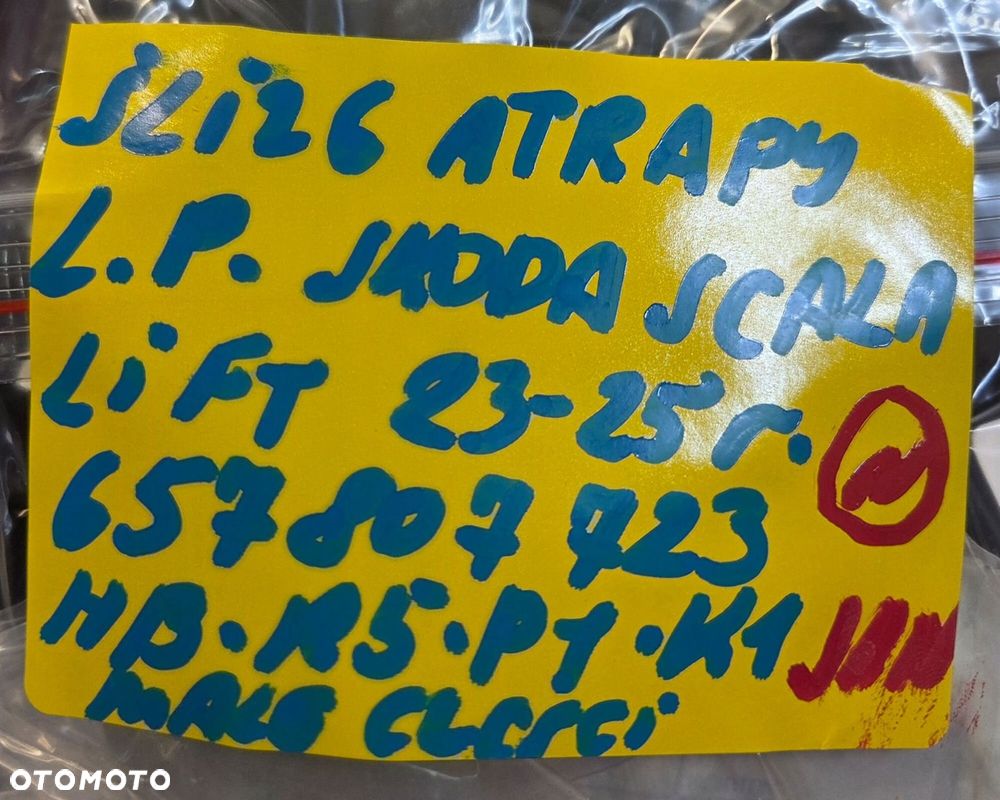 ŚLiZG ATRAPY
L.P. SKODA SCALA
LiFT 23-25r.
657 807 723 N
HB.R5.P1.K1
MAŁE CZĘŚCi
OTOMOTO